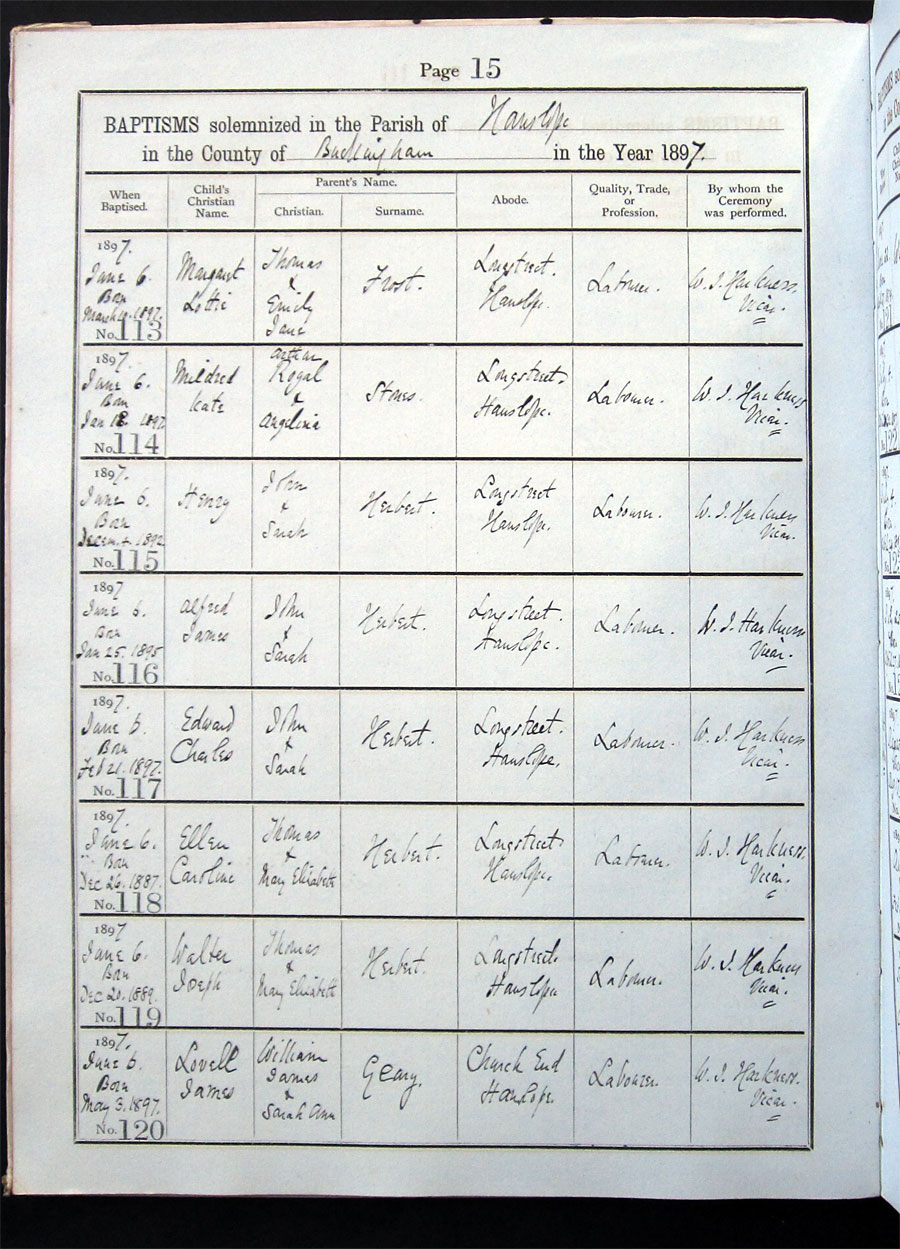 Page 15
BAPTISMS solemnized in the Parish of Hanslope
in the County of Buckingham in the Year 1897.
When Baptised.
Child's Christian Name.
Parent's Name.
Christian.
Surname.
Abode.
Quality, Trade, or Profession.
By whom the Ceremony was performed.
1897.
June 6.
Born
March 1897.
No. 113
Margaret
Lottie
Thomas
&
Emily
Jane
Frost.
Longstreet.
Hanslope.
Labourer.
W. J. Harkness.
Vicar.
1897.
June 6.
Born
Jan 18. 1897
No. 114
Mildred
Kate
Arthur
Royal
&
Angelina
Stones.
Longstreet.
Hanslope.
Labourer.
W. J. Harkness
Vicar.
1897.
June 6.
Born
Decem. 4. 1892
No. 115
Henry
John
&
Sarah
Herbert.
Longstreet
Hanslope.
Labourer.
W. J. Harkness
Vicar.
1897
June 6.
Born
Jan 25. 1895
No. 116
Alfred
James
John
&
Sarah
Herbert.
Longstreet.
Hanslope.
Labourer.
W. J. Harkness
Vicar.
1897.
June 6.
Born
Feb 21. 1897.
No. 117
Edward
Charles
John
&
Sarah
Herbert.
Longstreet.
Hanslope.
Labourer.
W. J. Harkness
Vicar.
1897.
June 6.
Born
Dec 26. 1887.
No. 118
Ellen
Caroline
Thomas
&
Mary Elizabeth
Herbert.
Longstreet.
Hanslope.
Labourer.
W. J. Harkness.
Vicar.
1897
June 6.
Born
Dec 20. 1889.
No. 119
Walter
Joseph
Thomas
&
Mary Elizabeth
Herbert.
Longstreet.
Hanslope
Labourer.
W. J. Harkness
Vicar.
1897.
June 6.
Born
May 3. 1897.
No. 120
Lovell
James
William
James
&
Sarah Ann
Geary.
Church End
Hanslope.
Labourer.
W. J. Harkness.
Vicar.